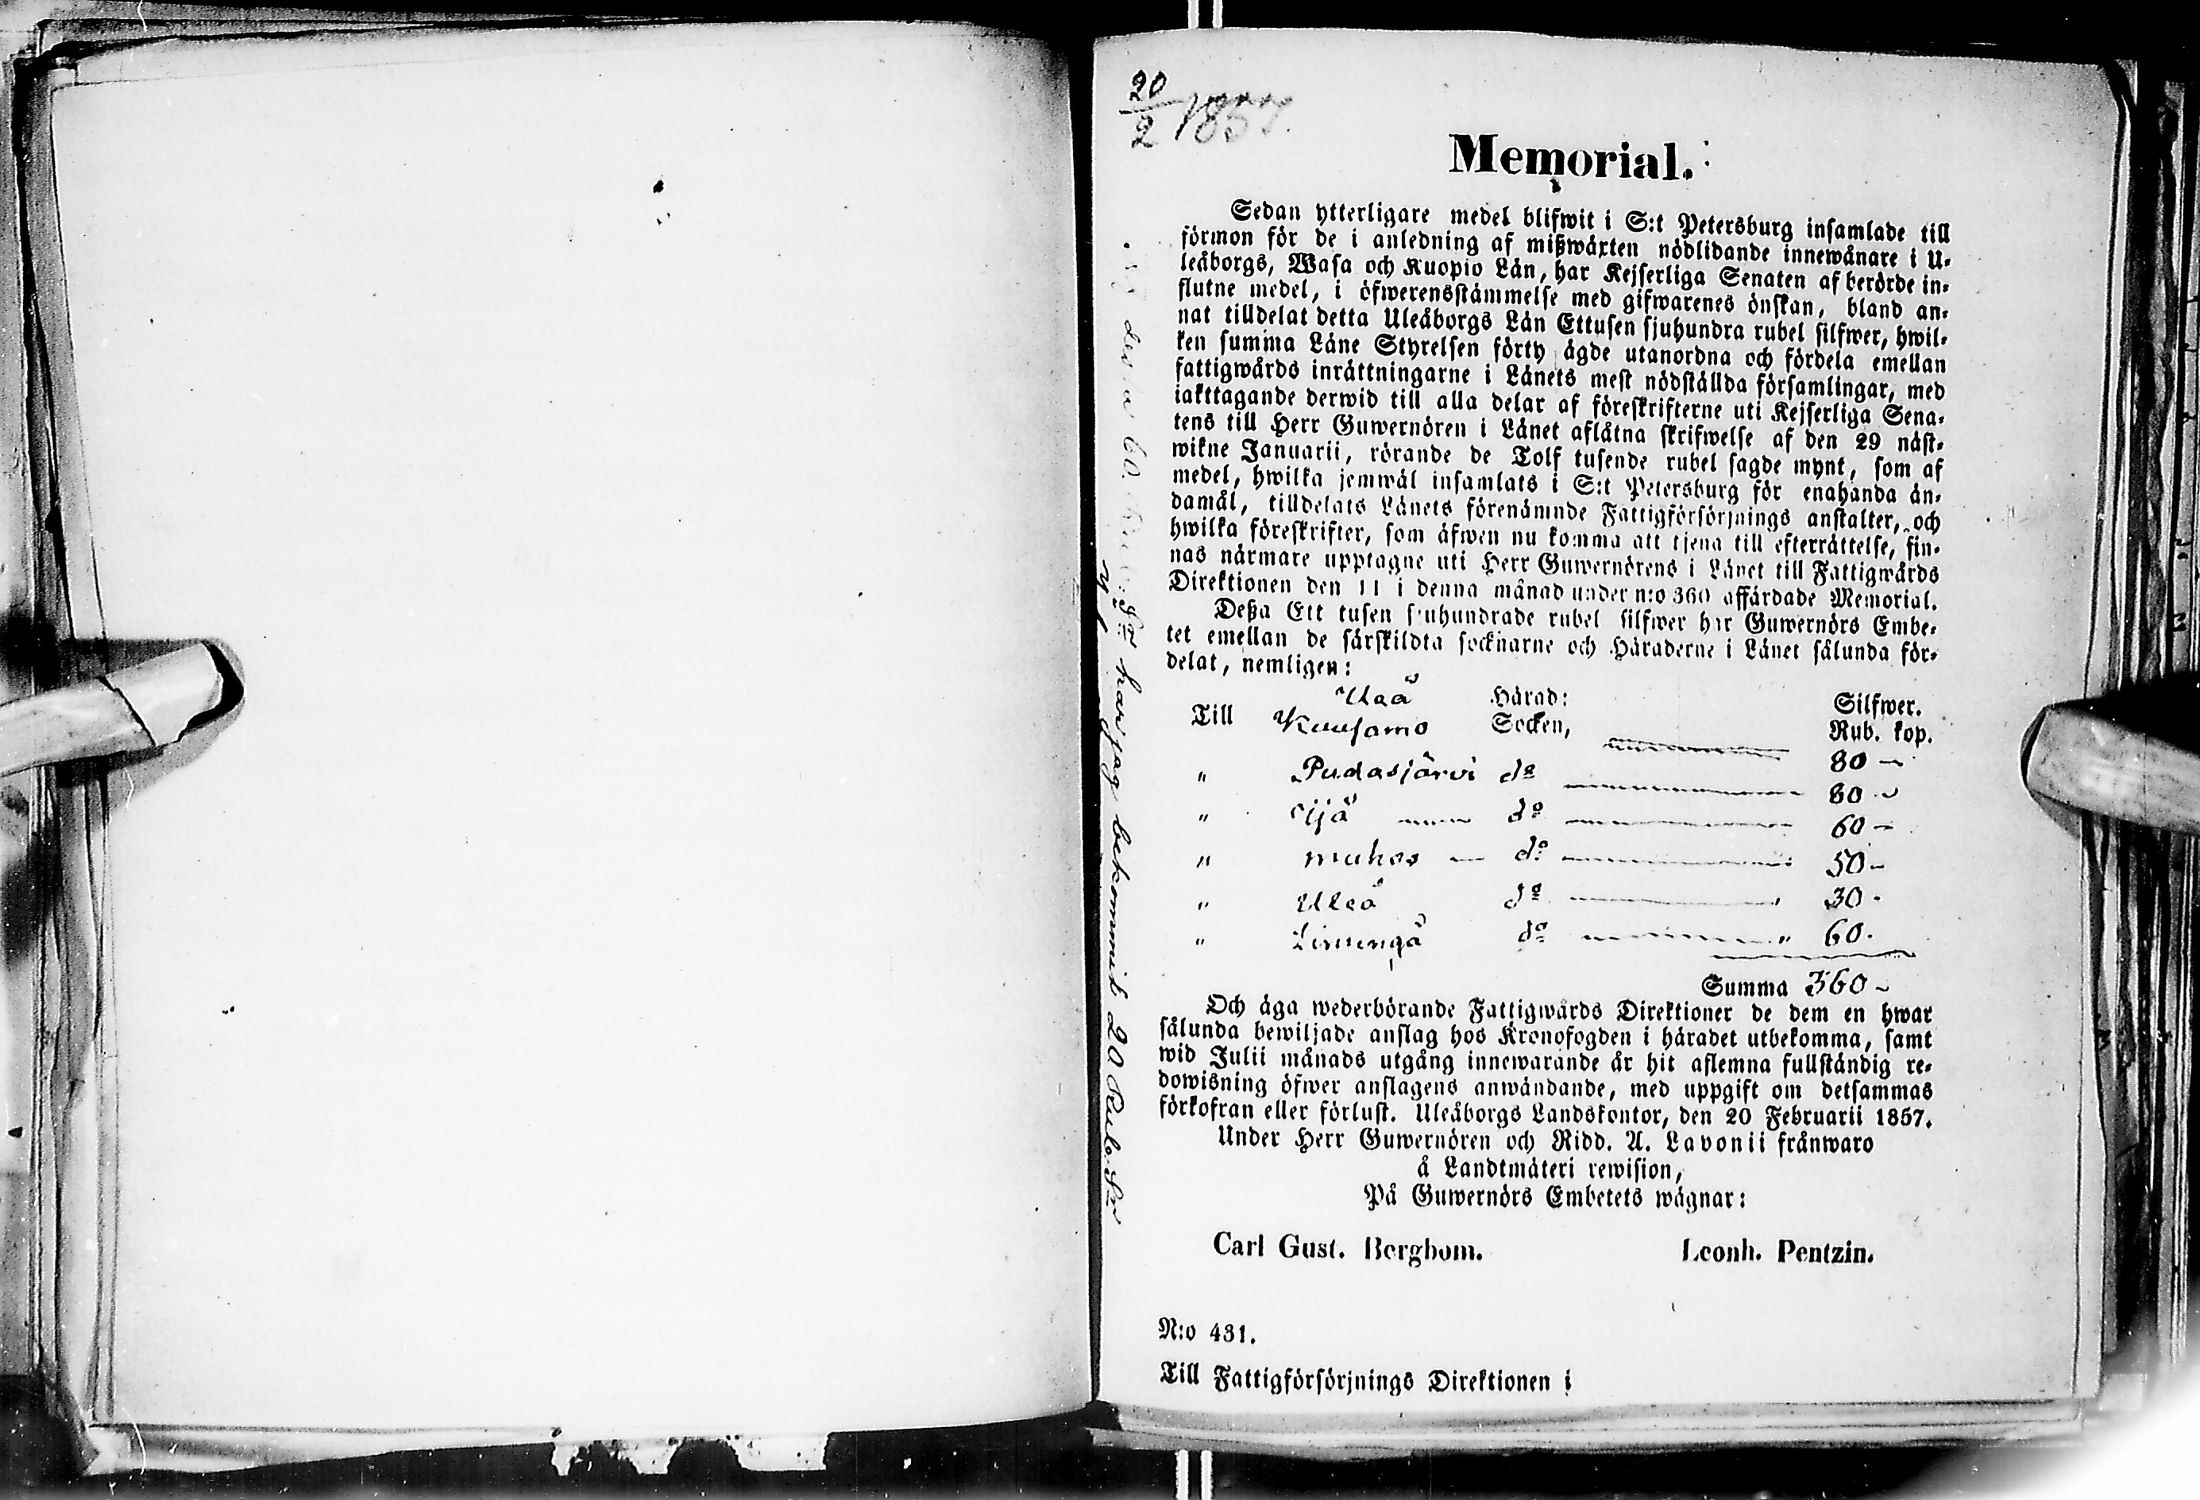 20/2 1857.
Memorial.
Sedan ytterligare medel blifwit i S:t Petersburg insamlade till
förmon för de i anledning af mißwäxten nödlidande innewånare i U-
leåborgs, Wasa och Kuopio Län, har Kejserliga Senaten af berörde in-
flutne medel, i öfwerensstämmelse med gifwarenes önskan, bland an-
nat tilldelat detta Uleåborgs Län Ettusen sjuhundra rubel silfwer, hwil-
ken summa Läne Styrelsen förty ägde utanordna och fördela emellan
fattigwårds inrättningarne i Länets mest nödställda församlingar, med
iakttagande derwid till alla delar af föreskrifterne uti Kejserliga Sena-
tens till Herr Guwernören i Länet aflåtna skrifwelse af den 29 näst-
wikne Januarii, rörande de Tolf tusende rubel sagde mynt, som af
medel, hwilka jemwäl insamlats i S:t Petersburg för enahanda än-
damål, tilldelats Länets förenämnde Fattigförsörjnings anstalter, och
hwilka föreskrifter, som äfwen nu komma att tjena till efterrättelse, fin-
nas närmare upptagne uti Herr Guwernörens i Länet till Fattigwårds
Direktionen den 11 i denna månad under n:o 360 affärdade Memorial.
Deßa Ett tusen sjuhundrade rubel silfwer har Guwernörs Embe-
tet emellan de särskildta socknarne och Häraderne i Länet sålunda för-
delat, nemligen:
Uleå Härad: Silfwer.
Till Kuusamo Socken, Rub. kop.
80 —
" Pudasjärvi do 80 —
" Ijå do 60 —
" Muhos — do 50 —
" Uleå do " 30 -
" Limingå do " 60.
Summa 360 —
Och äga wederbörande Fattigwårds Direktioner de dem en hwar
sålunda bewiljade anslag hos Kronofogden i häradet utbekomma, samt
wid Julii månads utgång innewarande år hit aflemna fullständig re-
dowisning öfwer anslagens anwändande, med uppgift om detsammas
förkofran eller förlust. Uleåborgs Landskontor, den 20 Februarii 1857.
Under Herr Guwernören och Ridd. A. Lavonii frånwaro
å Landtmäteri rewision,
På Guwernörs Embetets wägnar:
Carl Gust. Bergbom. Leonh. Pentzin.
N:o 431.
Till Fattigförsörjnings Direktionen i
dessa 60. Rub: Sr har jag bekommit 20 Rub. Sr